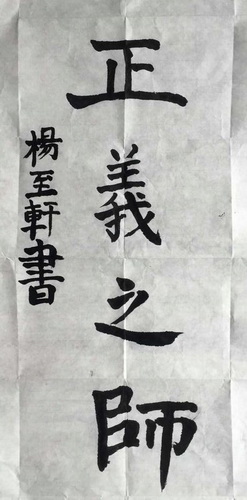 正義之師
楊至軒書